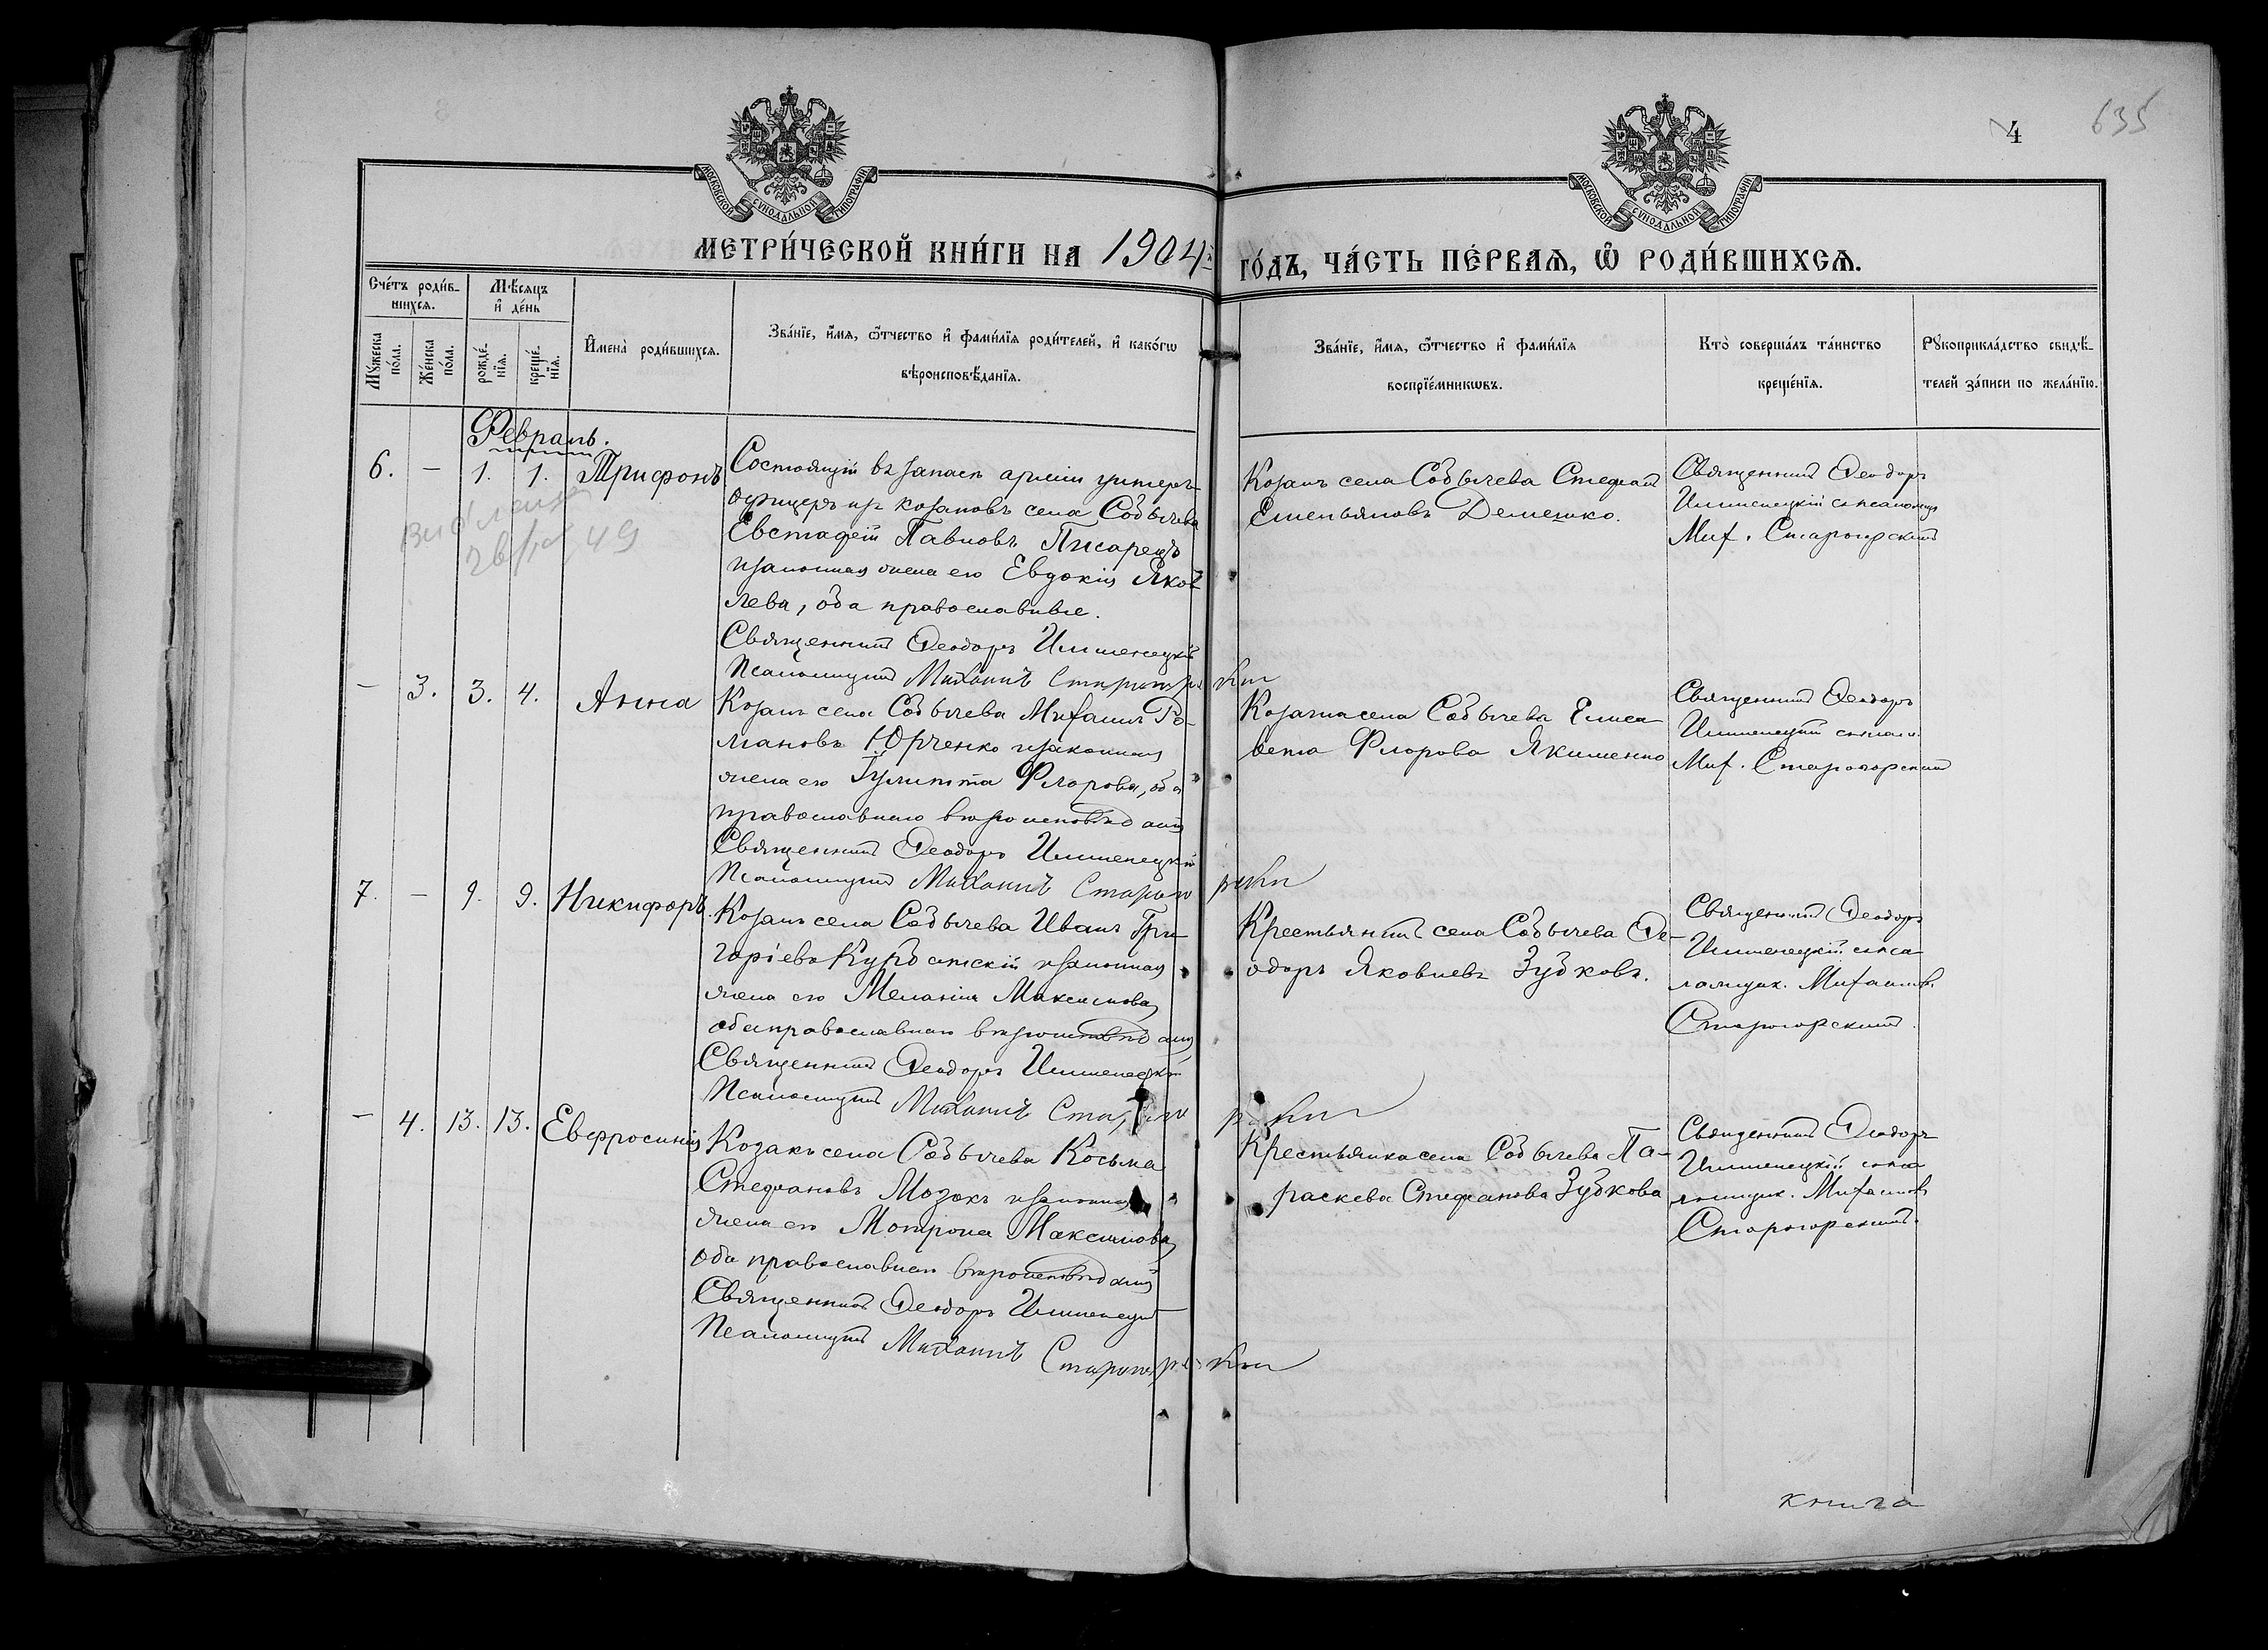 4
635
МОСКОВСКОЙ СѴНОДАЛЬНОЙ ТИПОГРАФІИ
МОСКОВСКОЙ СѴНОДАЛЬНОЙ ТИПОГРАФІИ
МЕТРИ́ЧЕСКОЙ КНИ́ГИ НА 1904й ГО́ДЪ, ЧА́СТЬ ПЕ́РВАѦ, Ѡ РОДИ́ВШИХСѦ.
Сче́тъ роди́в-
шихсѧ.
Мѣ́сѧцъ
и҆ де́нь
Мꙋ́жеска
по́ла.
Же́нска
по́ла.
рожде́-
нїѧ.
креще́-
нїѧ.
И҆мена̀ роди́вшихсѧ.
Зва́нїе, и҆́мѧ, ѻ҆́тчество и҆ фами́лїѧ роди́телей, и҆ како́гѡ
вѣроисповѣ́данїѧ.
Зва́нїе, и҆́мѧ, ѻ҆́тчество и҆ фами́лїѧ
воспрїе́мникѡвъ.
Кто̀ соверша́лъ та́инство
креще́нїѧ.
Рꙋкоприкла́дство свидѣ́-
телей за́писи по жела́нїю.
Февраль.
6. – 1. 1. Трифонъ
Состоящій въ запасѣ арміи унтеръ-
офицеръ изъ козаковъ села Собычева
Евстафій Павловъ Писарецъ
и законная жена его Евдокія Яков
лева, оба православные.
Священникъ Ѳеодоръ
Псаломщикъ Михаилъ Старогорскій
Козакъ села Собычева Стефанъ
Емельяновъ Демешко.
Священникъ Ѳеодоръ
съ псаломщ
Мих. Старогорскимъ
49
– 3. 3. 4. Анна
Козакъ села Собычева Михаилъ Ро-
мановъ Юрченко и законная
жена его Іулитта Флорова, оба
православнаго вѣроисповѣданія
Священникъ Ѳеодоръ
Псаломщикъ Михаилъ Старогорскій
Козачка села Собычева Елиса-
вета Флорова Якименко
Священникъ Ѳеодоръ
Мих. Старогорскимъ
7. – 9. 9. Никифоръ.
Козакъ села Собычева Иванъ Гри-
горіевъ и законная
жена его Меланія Максимова,
оба православнаго вѣроисповѣданія
Священникъ Ѳеодоръ
Псаломщикъ Михаилъ Старогорскій
Крестьянинъ села Собычева Ѳе-
одоръ Яковлевъ Зубковъ.
Священникъ Ѳеодоръ
съ пса-
ломщик. Михаиломъ
Старогорскимъ.
– 4. 13. 13. Евфросинія
Козакъ села Собычева Косьма
Стефановъ Мозокъ и законная
жена его Мотрона Максимова,
оба православнаго вѣроисповѣданія
Священникъ Ѳеодоръ
Псаломщикъ Михаилъ Старогорскій
Крестьянка села Собычева Па-
раскева Стефанова Зубкова
Священникъ Ѳеодоръ
съ пса
ломщик. Михаиломъ
Старогорскимъ.
книга